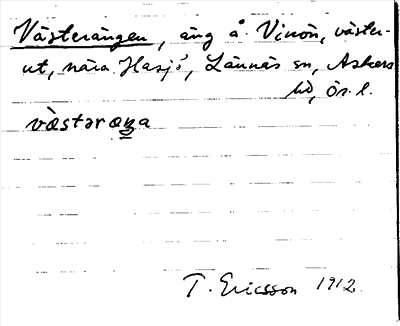 Västerängen, äng å Vinön, väster-
ut, nära Hasjö, Lännäs sn, Askers
hd, Ör. l.
västəräŋa
T. Ericsson 1912